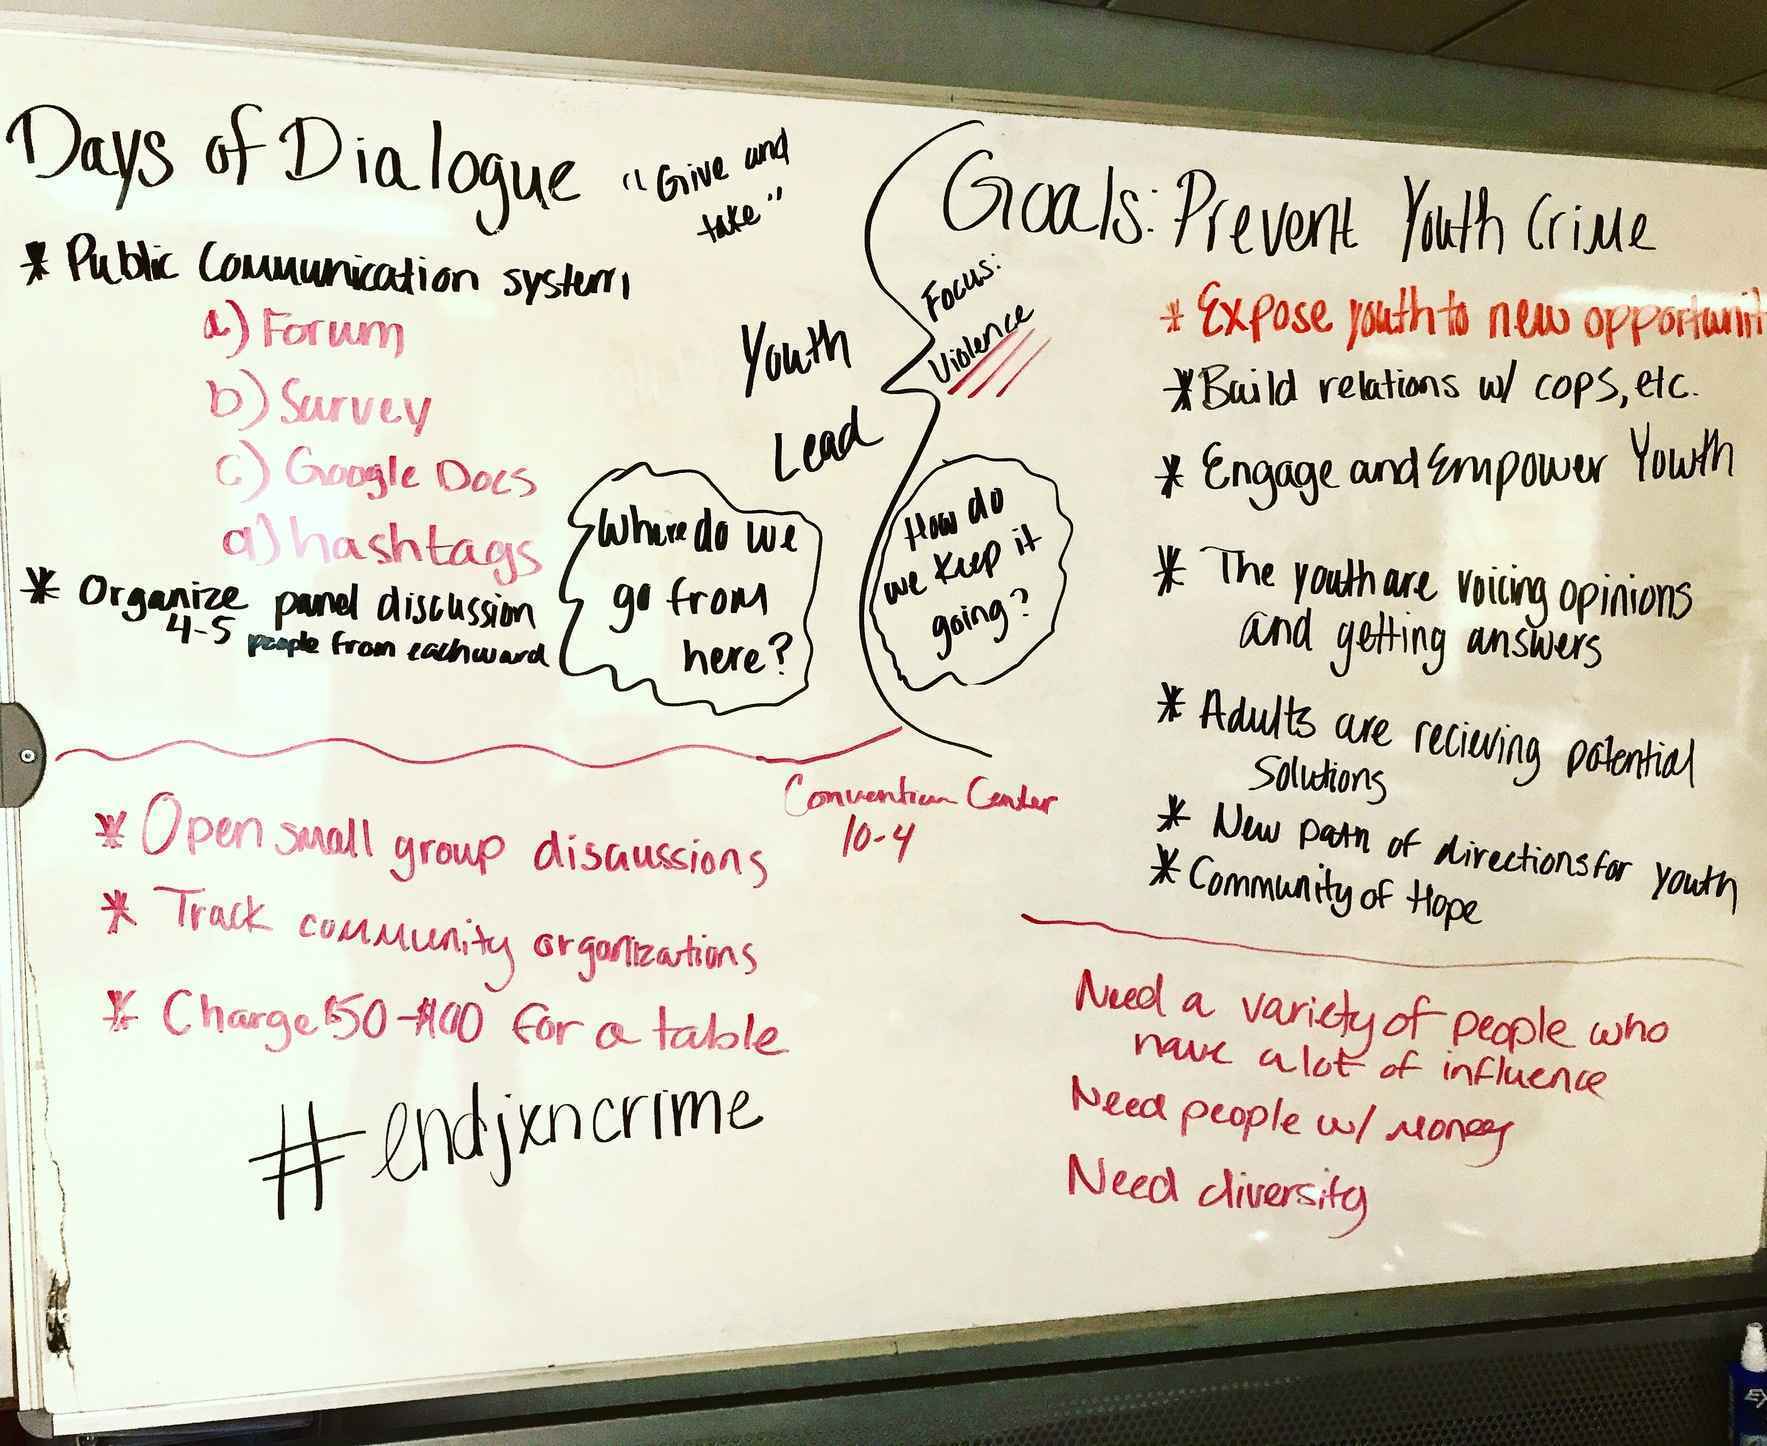 Days of Dialogue "Give and
take"
* Public Communication system
a) Forum
b) Survey
c) Google Docs
a) hashtags
* Organize panel discussion
4-5 people from each ward
Youth
Lead
Where do we
go from
here?
* Open small group disaussions
* Track community organizations
* Charge $50-$100 for a table
#endjxncrime
Convention Center
10-4
Goals: Prevent Youth Crime
Focus:
Violence
How do
we keep it
going?
* Expose youth to new opportunit
* Build relations w/ cops, etc.
* Engage and Empower Youth
* The youth are voicing opinions
and getting answers
* Adults are recieving potential
solutions
* New path of directions for youth
* Community of Hope
Need a variety of people who
have a lot of influence
Need people w/ money
Need diversity
EX